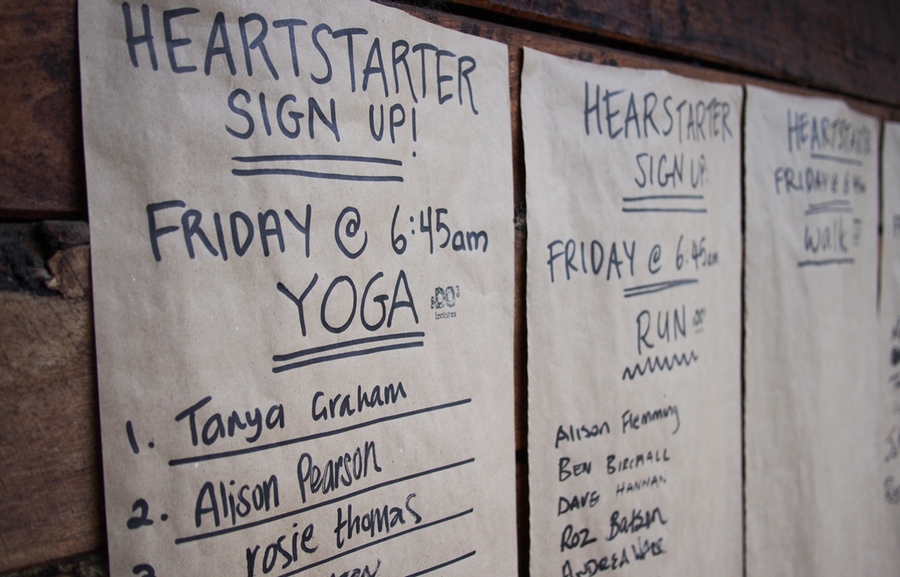 HEARTSTARTER
SIGN UP!
FRIDAY @ 6:45am
YOGA
DO
Lectures
1. Tanya Graham
2. Alison Pearson
3 rosie thomas
HEARSTARTER
SIGN UP
FRIDAY @ 6:45am
RUN
Alison Flemming
BEN BIRCHALL
DAVE HANNAH
Roz Batson
ANDREA
HEARTSTARTER
FRIDAY @ 6
walk